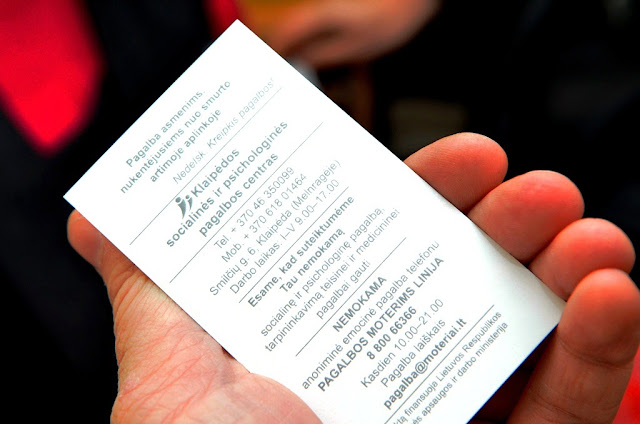 Pagalba asmenims,
nukentėjusiems nuo smurto
artimoje aplinkoje
Nedelsk. Kreipkis pagalbos!
Klaipėdos
socialinės ir psichologinės
pagalbos centras
Tel. + 370 46 350099
Mob. + 370 618 01464
Smilčių g. 6, Klaipėda (Meinragėje)
Darbo laikas: I–V 9.00–17.00
Esame, kad suteiktumėme
Tau nemokamą
socialinę ir psichologinę pagalbą,
tarpininkavimą teisinei ir medicininei
pagalbai gauti
NEMOKAMA
anoniminė emocinė pagalba telefonu
PAGALBOS MOTERIMS LINIJA
8 800 66366
Kasdien 10.00–21.00
Pagalba laiškais
pagalba@moteriai.lt
finansuoja Lietuvos Respublikos
apsaugos ir darbo ministerija